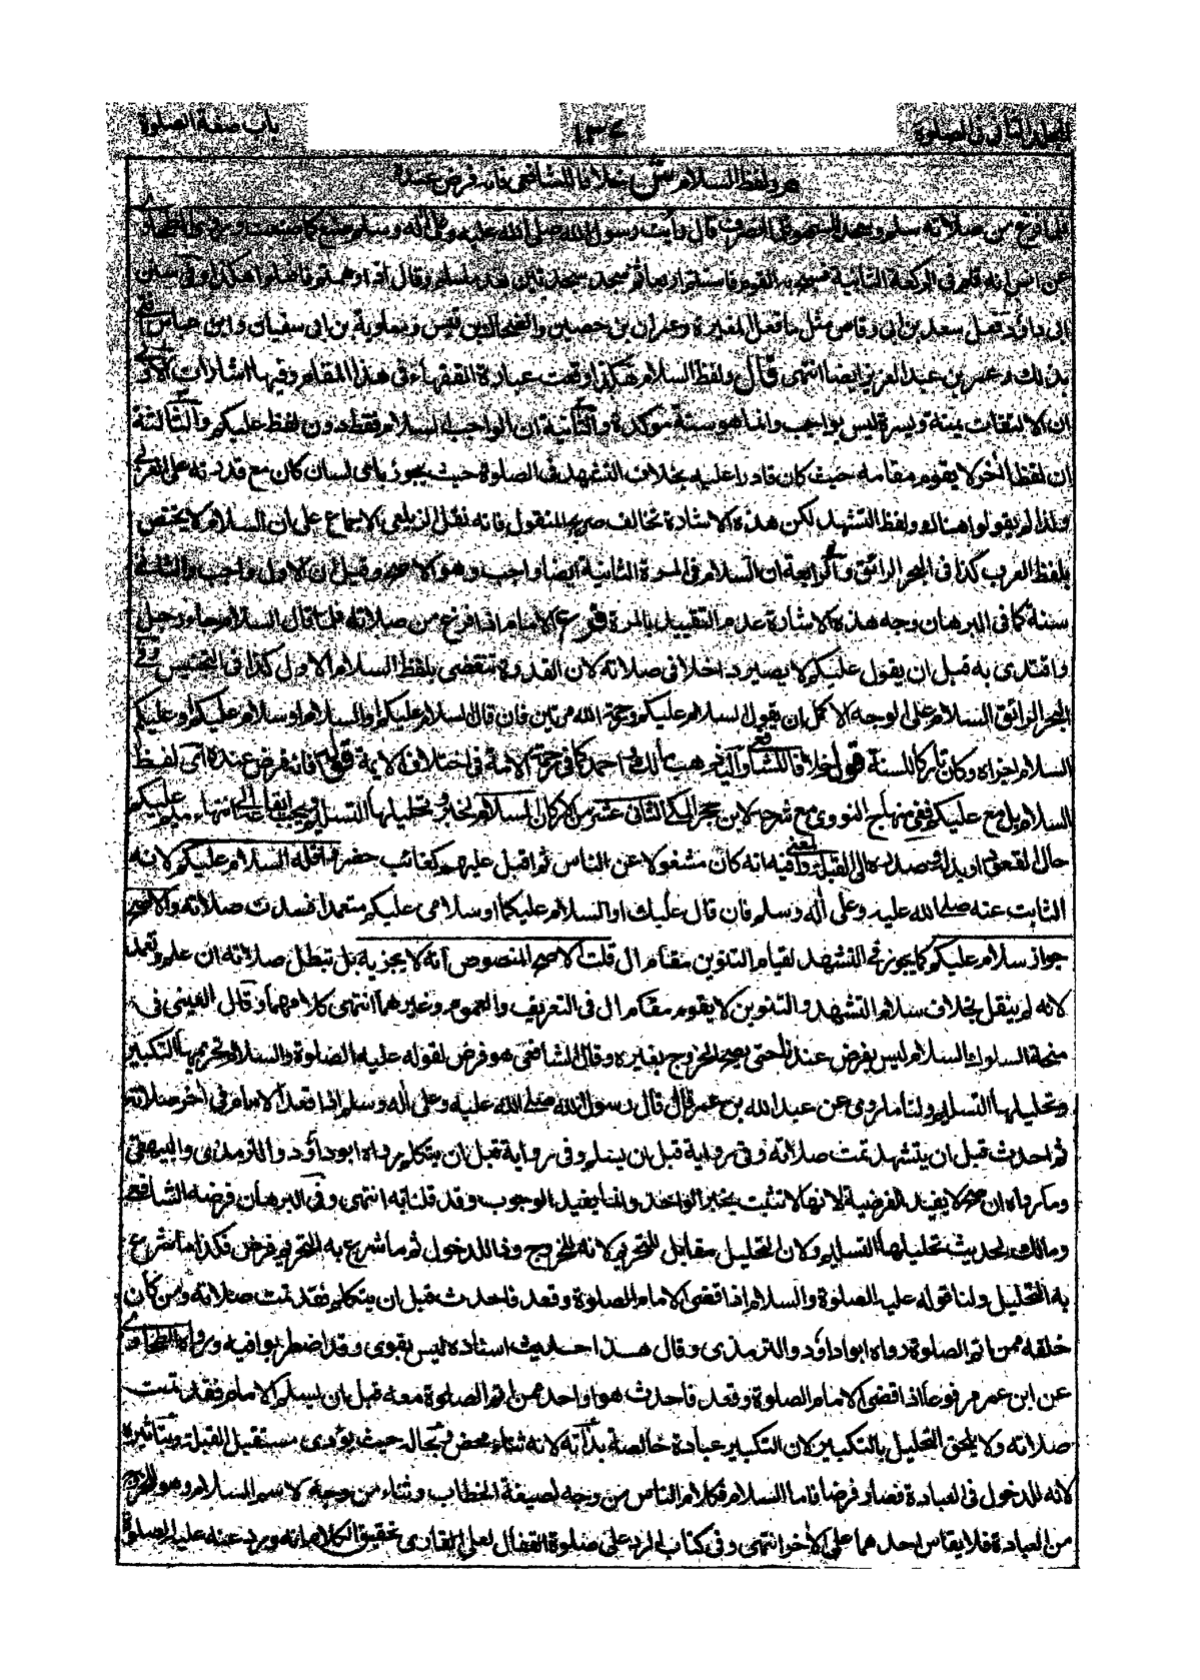 باب صفة الصلوة
١٣٤
المجلد الثاني في الصلوة
م ولفظ السلام ش خلافا للشافعي فانه فرض عنده
فلما فرغ من صلاته سلم وسجد السهو فلما انصرف قال رأيت رسول الله صلى الله عليه وعلى آله وسلم صنع كما صنعت
عن انس انه قام في الركعة الثانية فسبح به القوم فاستتم اربعا ثم سجد سجدتين بعد ما سلم وقال اذا وهمتم فافعلوا هكذا وفي سنن
ابي داؤد فعل سعد بن ابي وقاص مثل ما فعل المغيرة وعمران بن حصين والضحاك بن قيس ومعاوية بن ابي سفيان وابن عباس افتى
بذلك وعمر بن عبد العزيز ايضا انتهى قال ولفظ السلام هكذا وقعت عبارة الفقهاء في هذا المقام وفيها اشارات الاولى
ان الالتفات يمنة ويسرة ليس بواجب وانما هو سنة مؤكدة والثانية ان الواجب السلام فقط دون لفظ عليكم والثالثة
ان لفظا آخر لا يقوم مقامه حيث كان قادرا عليه بخلاف التشهد في الصلوة حيث يجوز باي لسان كان مع قدرته على العربي
ولذا لم يقولوا هناك ولفظ التشهد لكن هذه الاشارة تخالف صريح المنقول فانه نقل الزيلعي الاجماع على ان السلام لا يختص
بلفظ العرب كذا في البحر الرائق والرابعة ان السلام في المرة الثانية ايضا واجب وهو الاصح وقيل ان الاول واجب والثانية
سنة كما في البرهان وجه هذه الاشارة عدم التقييد بالمرة فرع الامام اذا فرغ من صلاته فلما قال السلام جاء رجل
واقتدى به قبل ان يقول عليكم لا يصير داخلا في صلاته لان القدوة تنقضي بلفظ السلام الاول كذا في التجنيس وفي
البحر الرائق السلام على الوجه الاكمل ان يقول السلام عليكم ورحمة الله مرتين فان قال السلام عليكم او السلام او سلام عليكم او عليكم
السلام اجزاه وكان تاركا للسنة قوله خلافا للشافعي واليه ذهب مالك واحمد كما في رحمة الامة في اختلاف الايمة قوله فانه فرض عنده اي لفظ
السلام بل مع عليكم ففي منهاج النووي مع شرحه لابن حجر المكي الثاني عشر من الاركان السلام لخبر وتحليلها التسليم ويجب ايقاعه الى انتهاء ميم عليكم
حال القعود او بدله وصدره الى القبلة والمعنى فيه انه كان مشغولا عن الناس ثم اقبل عليهم كغائب حضر واقله السلام عليكم لانه
الثابت عنه صلى الله عليه وعلى آله وسلم فان قال عليك او السلام عليكما او سلامي عليكم متعمدا فسدت صلاته والاصح
جواز سلام عليكم كما يجوز في التشهد لقيام التنوين مقام ال قلت الاصح المنصوص انه لا يجزيه بل تبطل صلاته ان علم وتعمد
لانه لم ينقل بخلاف سلام التشهد والتنوين لا يقوم مقام ال في التعريف والعموم وغيرهما انتهى كلامهما وقال العيني في
منحة السلوك السلام ليس بفرض عندنا حتى يصح الخروج بغيره وقال الشافعي هو فرض لقوله عليه الصلوة والسلام وتحريمها التكبير
وتحليلها التسليم ولنا ما روي عن عبد الله بن عمر قال قال رسول الله صلى الله عليه وعلى آله وسلم اذا قعد الامام في آخر صلاته
ثم احدث قبل ان يتشهد تمت صلاته وفي رواية قبل ان يسلم وفي رواية قبل ان يتكلم رواه ابوداؤد والترمذي والبيهقي
وما رواه ان صح لا يفيد الفرضية لانها لا تثبت بخبر الواحد وانما يفيد الوجوب وقد قلنا به انتهى وفي البرهان فرضه الشافعي
ومالك لحديث تحليلها التسليم وكان التحليل مقابل للتحريم لانه للخروج وذا للدخول ثم ما شرع به التحريم فرض فكذا ما شرع
به التحليل ولنا قوله عليه الصلوة والسلام اذا قضى الامام الصلوة وقعد فاحدث قبل ان يتكلم فقد تمت صلاته ومن كان
خلفه ممن اتم الصلوة رواه ابو داؤد والترمذي وقال هذا حديث اسناده ليس بقوي وقد اضطربوا فيه ورواه الطحاوي
عن ابن عمر مرفوعا اذا قضى الامام الصلوة وقعد فاحدث هو او احد ممن اتم الصلوة معه قبل ان يسلم الامام فقد تمت
صلاته ولا يلحق التحليل بالتكبير لان التكبير عبادة خالصة بذاته لانه ثناء محض وبحاله حيث يؤدى مستقبل القبلة وبتأثيره
لانه للدخول في العبادة فصار فرضا فاما السلام فكلام الناس من وجه لصيغة الخطاب وثناء من وجه لاسم السلام وهو للخروج
من العبادة فلا يقاس احدهما على الآخر انتهى وفي كتاب الرد على صلوة القفال لعلي القاري تحقيق الكلام انه ورد عنه عليه الصلوة